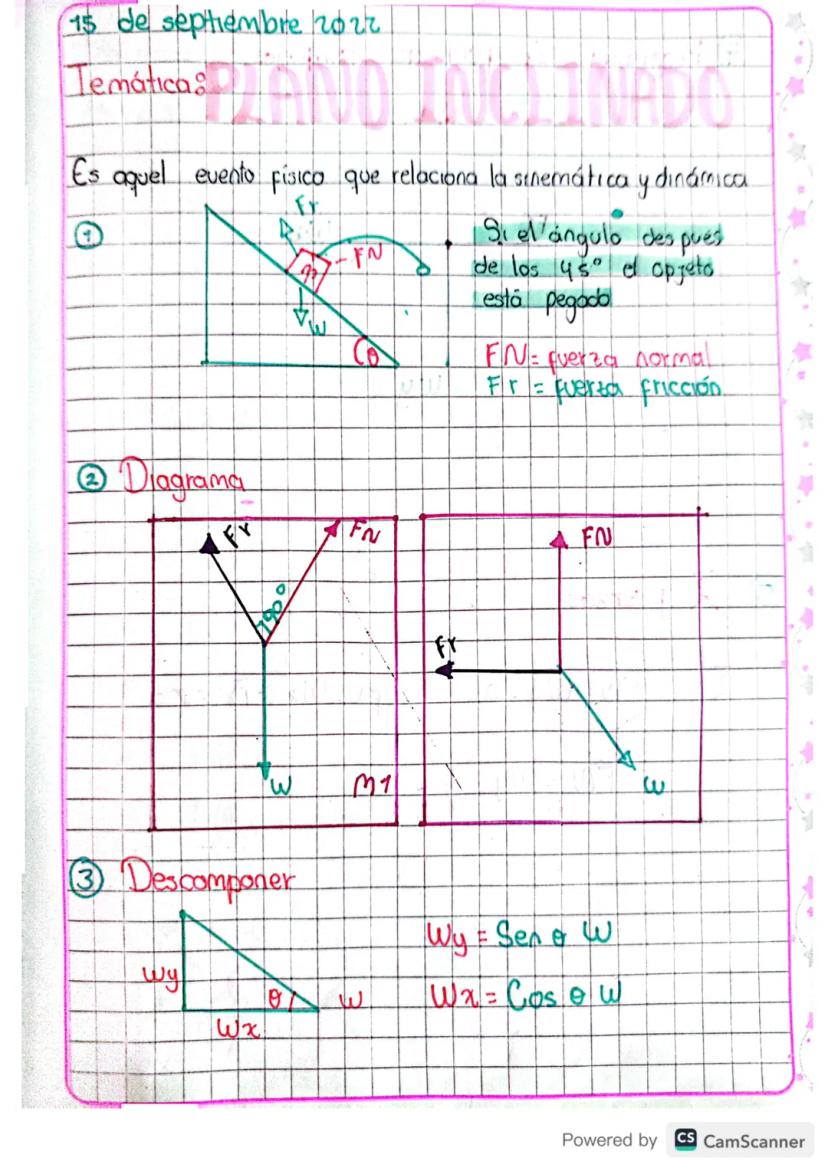 15 de septiembre 2022
Temática: PLANO INCLINADO
Es aquel evento físico que relaciona la sinemática y dinámica
1
Fr
m
FN
W
θ
Si el ángulo despues
de los 45° el opjeto
está pegado
FN = fuerza normal
Fr = fuerza fricción
2 Diagrama
Fr
FN
90°
W
M1
FN
Fr
W
3 Descomponer
Wy = Sen θ W
Wy
θ
W
Wx = Cos θ W
Wx
Powered by CS CamScanner